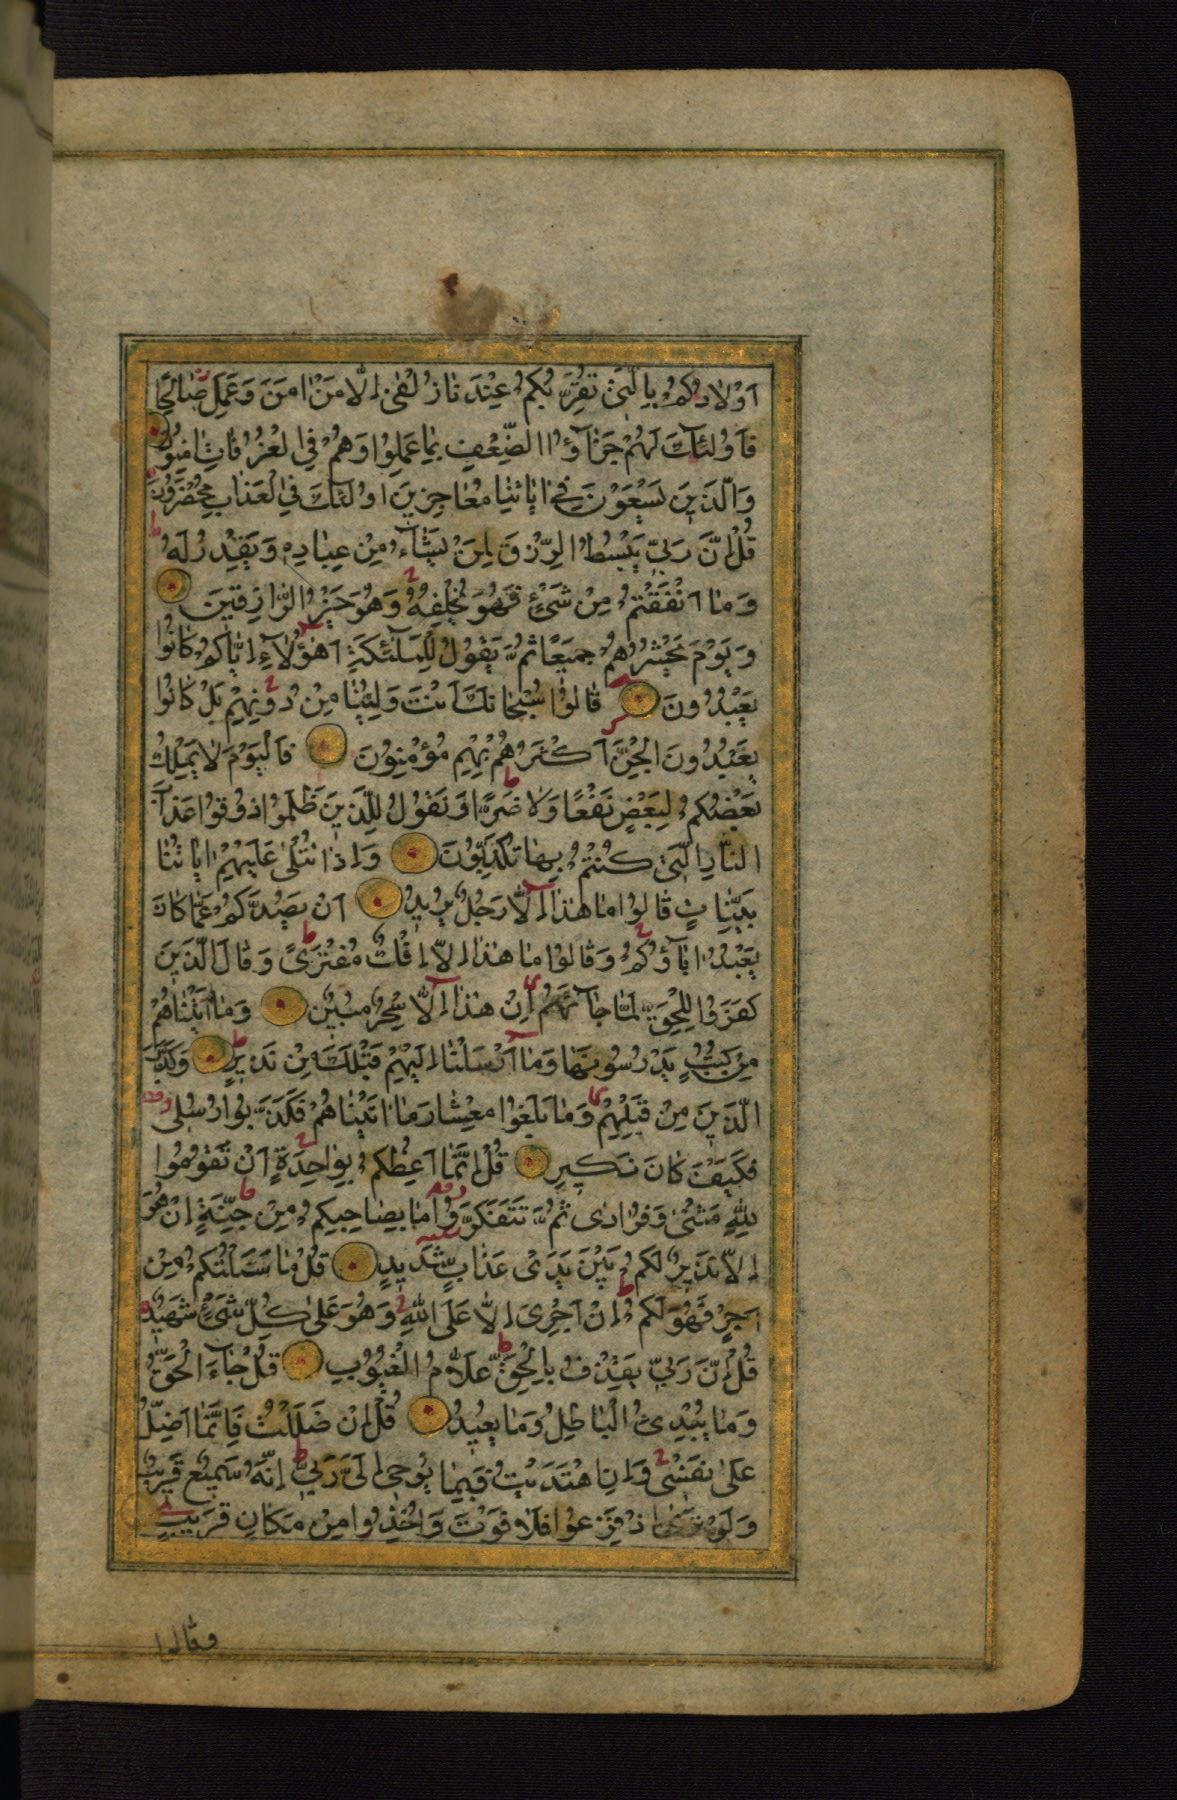 اَوْلَادُكُمْ بِالَّتِي تُقَرِّبُكُمْ عِنْدَنَا زُلْفٰى اِلَّا مَنْ اٰمَنَ وَعَمِلَ صَالِحًا
فَاُولٰئِكَ لَهُمْ جَزَاۤؤُا الضِّعْفِ بِمَا عَمِلُوا وَهُمْ فِي الْغُرُفَاتِ اٰمِنُونَ
وَالَّذِينَ يَسْعَوْنَ فِي اٰيَاتِنَا مُعَاجِزِينَ اُولٰئِكَ فِي الْعَذَابِ مُحْضَرُونَ
قُلْ اِنَّ رَبِّي يَبْسُطُ الرِّزْقَ لِمَنْ يَشَاۤءُ مِنْ عِبَادِهِ وَيَقْدِرُ لَهُ
وَمَا اَنْفَقْتُمْ مِنْ شَيْءٍ فَهُوَ يُخْلِفُهُ وَهُوَ خَيْرُ الرَّازِقِينَ
وَيَوْمَ يَحْشُرُهُمْ جَمِيعًا ثُمَّ يَقُولُ لِلْمَلٰئِكَةِ اَهٰؤُلَاۤءِ اِيَّاكُمْ كَانُوا
يَعْبُدُونَ قَالُوا سُبْحَانَكَ اَنْتَ وَلِيُّنَا مِنْ دُونِهِمْ بَلْ كَانُوا
يَعْبُدُونَ الْجِنَّ اَكْثَرُهُمْ بِهِمْ مُؤْمِنُونَ فَالْيَوْمَ لَا يَمْلِكُ
بَعْضُكُمْ لِبَعْضٍ نَفْعًا وَلَا ضَرًّا وَنَقُولُ لِلَّذِينَ ظَلَمُوا ذُوقُوا عَذَابَ
النَّارِ الَّتِي كُنْتُمْ بِهَا تُكَذِّبُونَ وَاِذَا تُتْلٰى عَلَيْهِمْ اٰيَاتُنَا
بَيِّنَاتٍ قَالُوا مَا هٰذَا اِلَّا رَجُلٌ يُرِيدُ اَنْ يَصُدَّكُمْ عَمَّا كَانَ
يَعْبُدُ اٰبَاۤؤُكُمْ وَقَالُوا مَا هٰذَا اِلَّا اِفْكٌ مُفْتَرًى وَقَالَ الَّذِينَ
كَفَرُوا لِلْحَقِّ لَمَّا جَاۤءَهُمْ اِنْ هٰذَا اِلَّا سِحْرٌ مُبِينٌ وَمَا اٰتَيْنَاهُمْ
مِنْ كُتُبٍ يَدْرُسُونَهَا وَمَا اَرْسَلْنَا اِلَيْهِمْ قَبْلَكَ مِنْ نَذِيرٍ وَكَذَّبَ
الَّذِينَ مِنْ قَبْلِهِمْ وَمَا بَلَغُوا مِعْشَارَ مَا اٰتَيْنَاهُمْ فَكَذَّبُوا رُسُلِي
فَكَيْفَ كَانَ نَكِيرِ قُلْ اِنَّمَا اَعِظُكُمْ بِوَاحِدَةٍ اَنْ تَقُومُوا
لِلّٰهِ مَثْنٰى وَفُرَادٰى ثُمَّ تَتَفَكَّرُوا مَا بِصَاحِبِكُمْ مِنْ جِنَّةٍ اِنْ هُوَ
اِلَّا نَذِيرٌ لَكُمْ بَيْنَ يَدَيْ عَذَابٍ شَدِيدٍ قُلْ مَا سَئَلْتُكُمْ مِنْ
اَجْرٍ فَهُوَ لَكُمْ اِنْ اَجْرِيَ اِلَّا عَلَى اللّٰهِ وَهُوَ عَلٰى كُلِّ شَيْءٍ شَهِيدٌ
قُلْ اِنَّ رَبِّي يَقْذِفُ بِالْحَقِّ عَلَّامُ الْغُيُوبِ قُلْ جَاۤءَ الْحَقُّ
وَمَا يُبْدِئُ الْبَاطِلُ وَمَا يُعِيدُ قُلْ اِنْ ضَلَلْتُ فَاِنَّمَا اَضِلُّ
عَلٰى نَفْسِي وَاِنِ اهْتَدَيْتُ فَبِمَا يُوحِي اِلَيَّ رَبِّي اِنَّهُ سَمِيعٌ قَرِيبٌ
وَلَوْ تَرٰى اِذْ فَزِعُوا فَلَا فَوْتَ وَاُخِذُوا مِنْ مَكَانٍ قَرِيبٍ
وقالوا